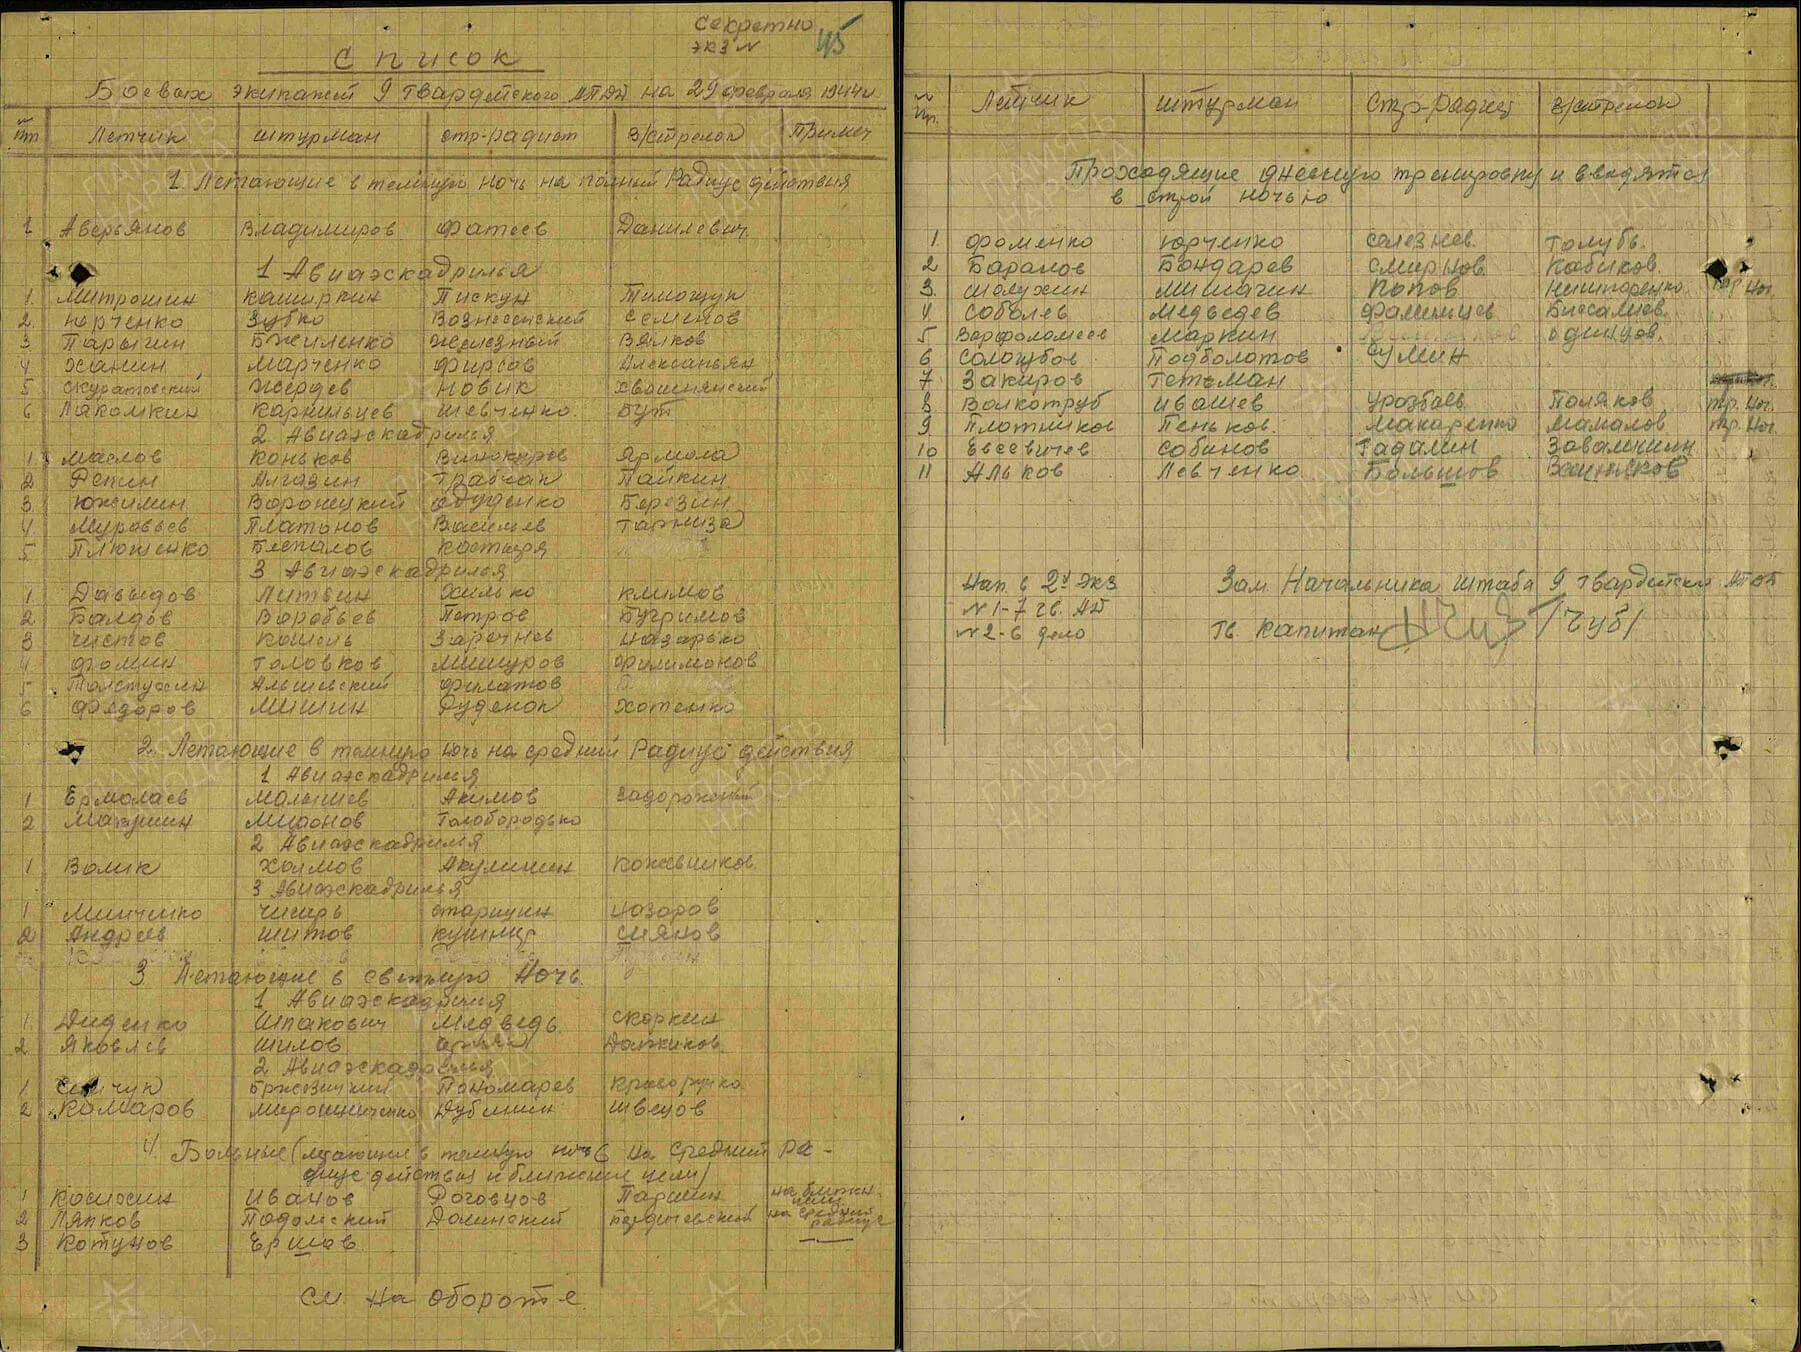 Секретно
экз №
45
Список
Боевых экипажей 9 Гвардейского АПДД на 29 февраля 1944 г.
№ пп Летчик штурман стр-радист в/стрелок Примеч
1. Летающие в темную ночь на полный Радиус действия
1 Аверьянов Владимиров Фатеев Данилевич
1 Авиаэскадрилья
1. Митрошин Каширкин Пискун Тимощук
2. Юрченко Зубко Вознесенский Семенов
3 Парыгин Бжиленко Железный Вялков
4 Ханин Марченко Фирсов Алексаньян
5 Скуратовский Жердев Новик Хващнянский
6 Лакомкин Карнильцев Шевченко. Бут
2. Авиаэскадрилья
1 Маслов Коньков Винокуров Ярмола
2 Репин Алгазин Грабчак Пайкин
3 Южилин Воронецкий Дуденко Березин
4 Муравьев Платонов Васильев Гарниза
5 Плющенко Беспалов Костыря
3 Авиаэскадрилья
1 Давыдов Литвин Охилько Климов
2 Балдов Воробьев Петров Бугримов
3 Чистов Кошель Заречнев Назарько
4 Фомин Головков Мишуров Филимонов
5 Толстухин Альшевский Филатов
6 Федоров Мишин Руденок Хотенко
2. Летающие в темную ночь на средний Радиус действия
1 Авиаэскадрилья
1 Ермолаев Малышев Акимов Задорожный
2 Макушин Миронов Голобородько
2 Авиаэскадрилья
1 Волик Холмов Акулинин Кожевников
3 Авиаэскадрилья
1 Минченко Чигирь Старицын Назаров
2 Андреев Шитов Кушнир Сиянов
3 Летающие в светлую Ночь.
1 Авиаэскадрилья
1. Диденко Шпакович Медведь Скоркин
2 Яковлев Шилов Должиков
2 Авиаэскадрилья
1 Бржезицкий Пономарев Криворучко
2 Комаров Мирошниченко Дубинин Швецов
4. Больные (летающие в темную ночь на средний ра-
диус действия и ближние цели)
1 Косихин Иванов Роговцов Паршин на ближн. цели
2 Ляпков Подольский Долинский Бердичевский на средний радиус
3 Котунов Ершов —
См. на обороте
№ пп. Летчик штурман Стр-радист в/стрелок
Проходящие дневную тренировку и вводятся
в строй ночью
1. Фоменко Юрченко Селезнев. Голубь.
2 Баралов Бондарев Смирнов. Кабиков.
3. Шолухин Мишагин Попов Нишпоренко тр. Ноч.
4 Соболев Медведев Фалимцев Бисалиев.
5 Варфоломеев Маркин Одинцов.
6 Сологубов Подболотов Сумин
7 Закиров Гетьман
8 Волкотруб Ивашев Урозбаев Поляков тр. Ноч.
9 Плотников Пеньков. Макаренко Мамалов тр. Ноч
10 Евсевичев Собинов Гадалин Завалишин
11 Альков Левченко Большов
Нап. в 2х экз
№ 1-7 гв. АД
№ 2-в дело
Зам Начальника штаба 9 гвардейск АПДД
Гв капитан /Чуб/